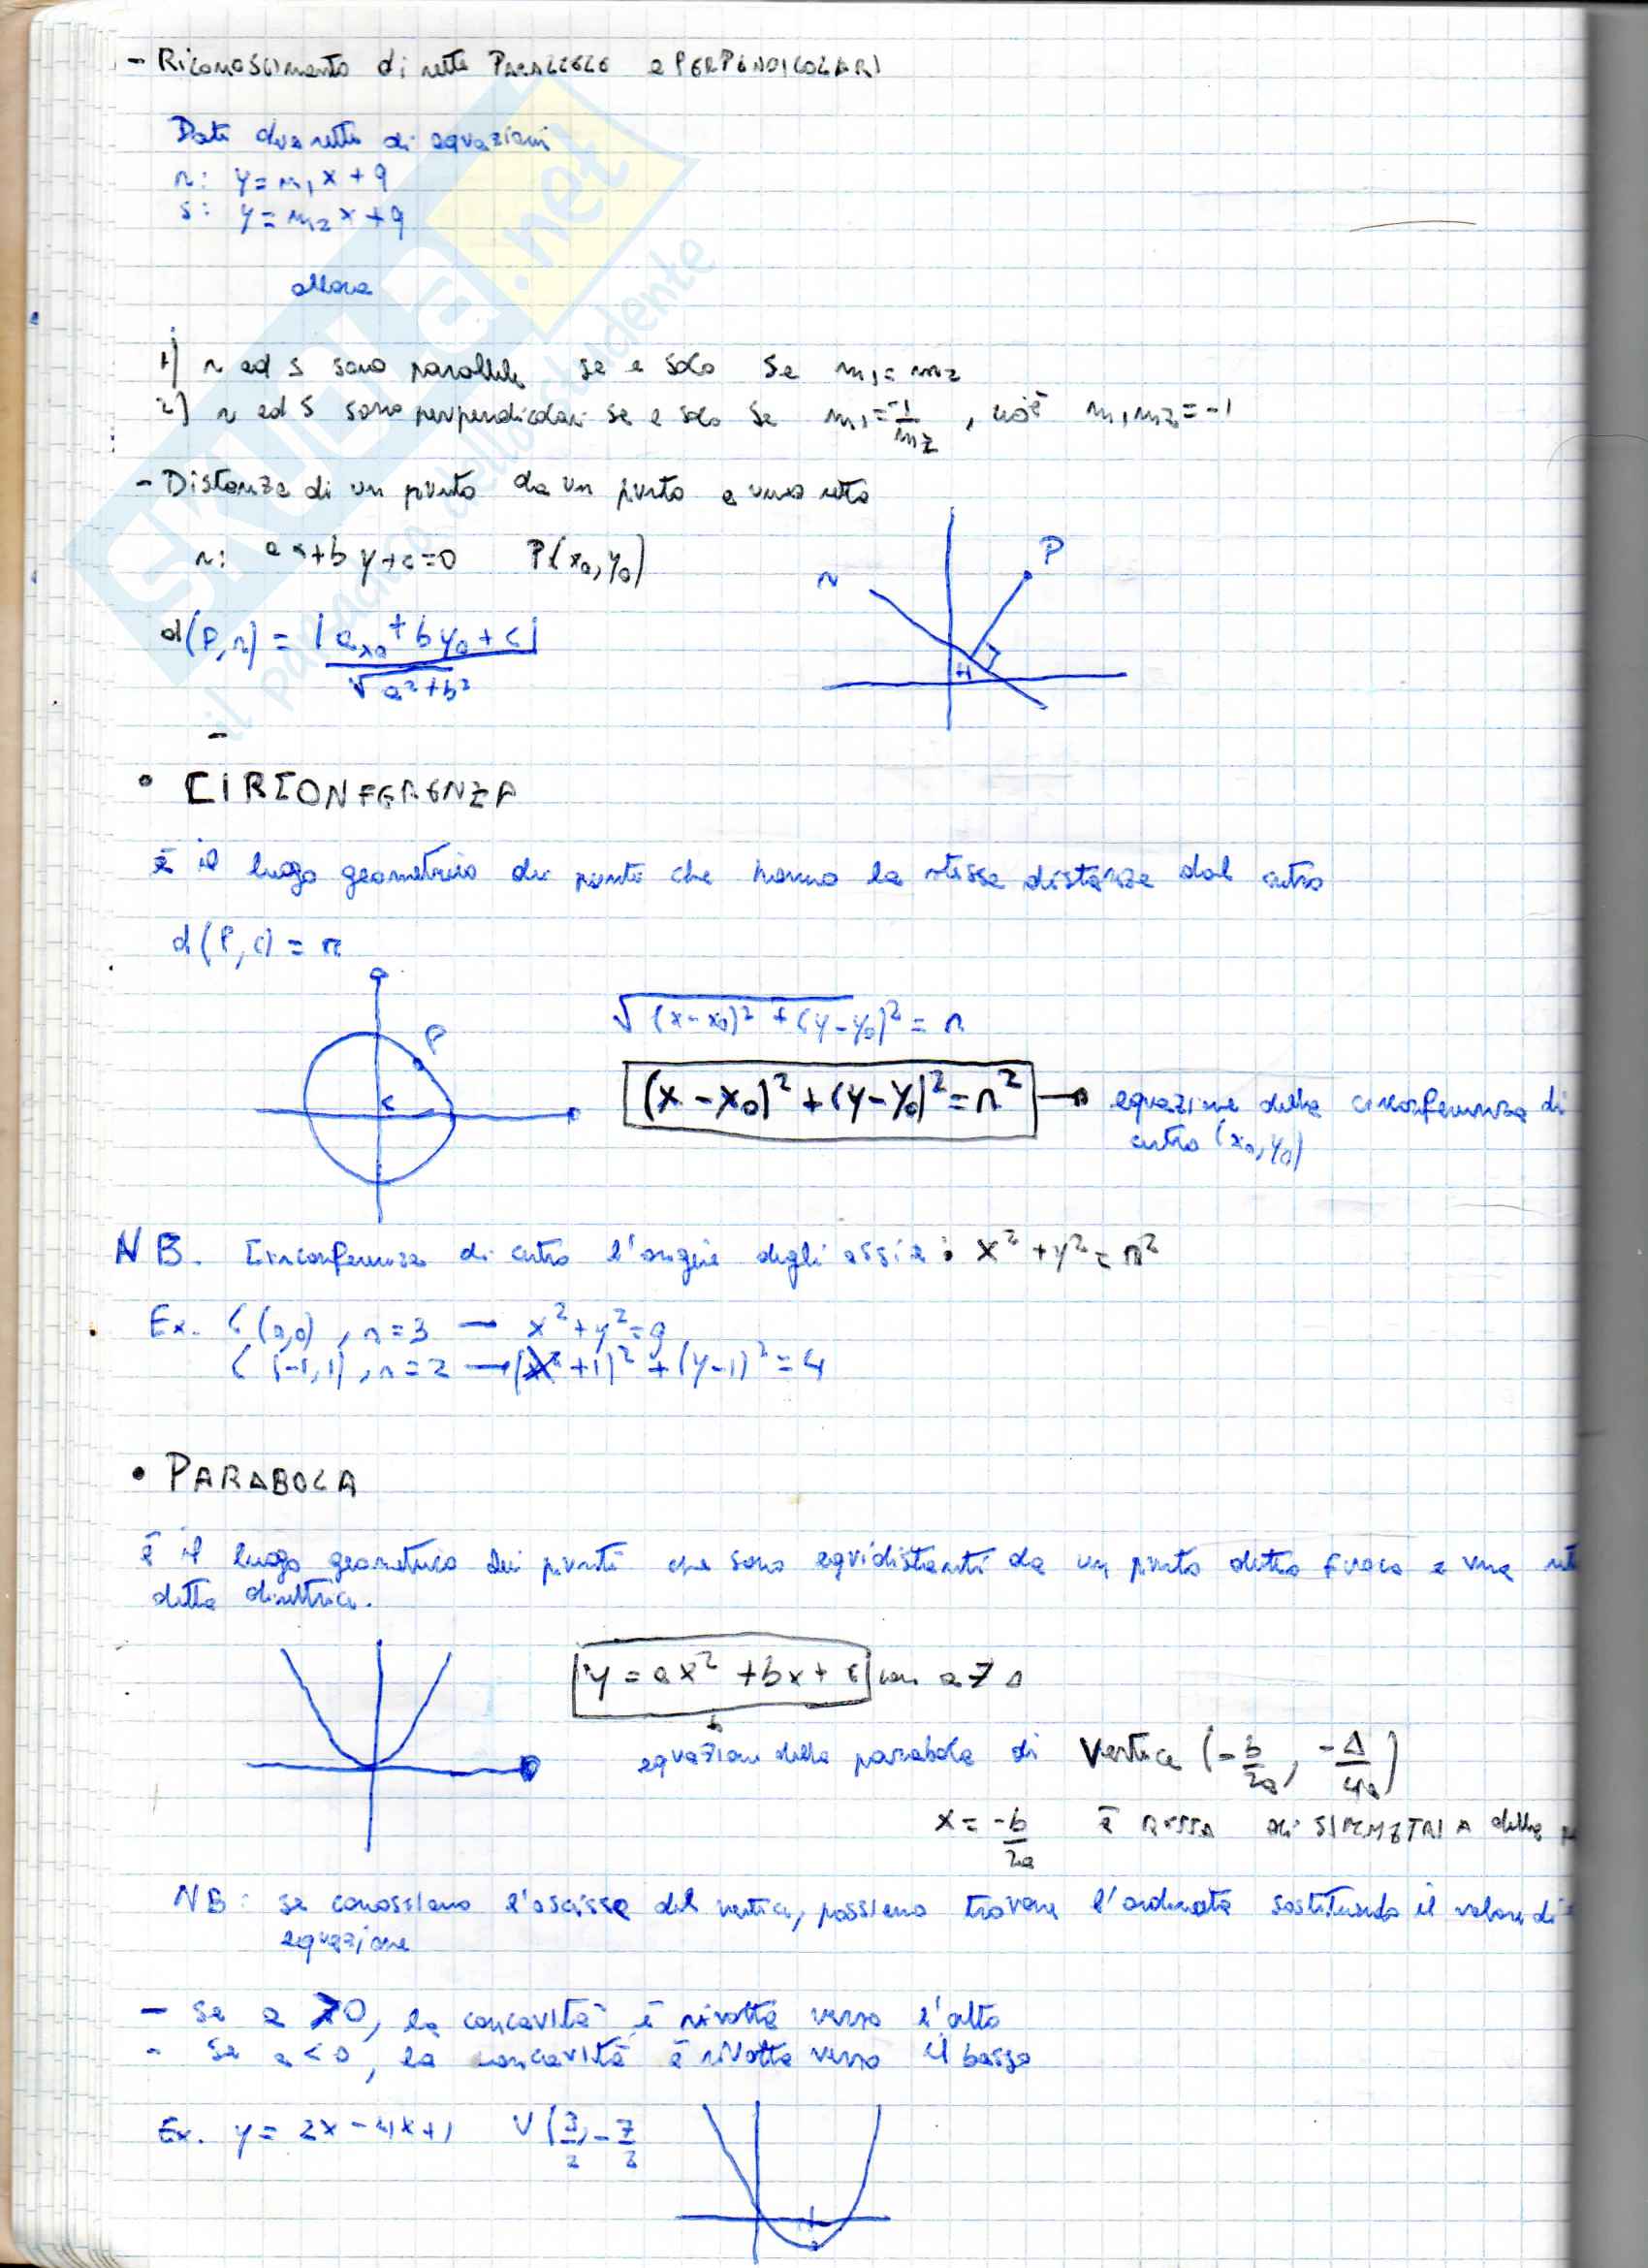 - Riconoscimento di rette PARALLELE e PERPENDICOLARI
Date due rette di equazioni
r: y = m₁x + q
s: y = m₂x + q
allora
1) r ed s sono parallele se e solo se m₁ = m₂
2) r ed s sono perpendicolari se e solo se m₁ = -1/m₂, cioè m₁m₂ = -1
- Distanza di un punto da un punto e una retta
r: ax + by + c = 0 P(x₀, y₀)
r P H
d(P, r) = |ax₀ + by₀ + c| / √a² + b²
-
• CIRCONFERENZA
è il luogo geometrico dei punti che hanno la stessa distanza dal centro
d(P, C) = r
P
C
√(x-x₀)² + (y-y₀)² = r
(x - x₀)² + (y - y₀)² = r² → equazione della circonferenza di
centro (x₀, y₀)
NB. Circonferenza di centro l'origine degli assi è: x² + y² = r²
Ex. C (0,0), r = 3 — x² + y² = 9
C (-1, 1), r = 2 — (x + 1)² + (y - 1)² = 4
• PARABOLA
è il luogo geometrico dei punti che sono equidistanti da un punto detto fuoco e una
detta direttrice.
y = ax² + bx + c con a ≠ 0
equazione della parabola di Vertice (-b/2a, -Δ/4a)
x = -b/2a è RETTA di SIMMETRIA della
NB: se conosciamo l'ascissa del vertice, possiamo trovare l'ordinata sostituendo il valore di
equazione
- se a > 0, la concavità è rivolta verso l'alto
- se a < 0, la concavità è rivolta verso il basso
Ex. y = 2x - 4x + 1 V (3/2, -7/2
SKUOLA.net
il paradiso dello studente